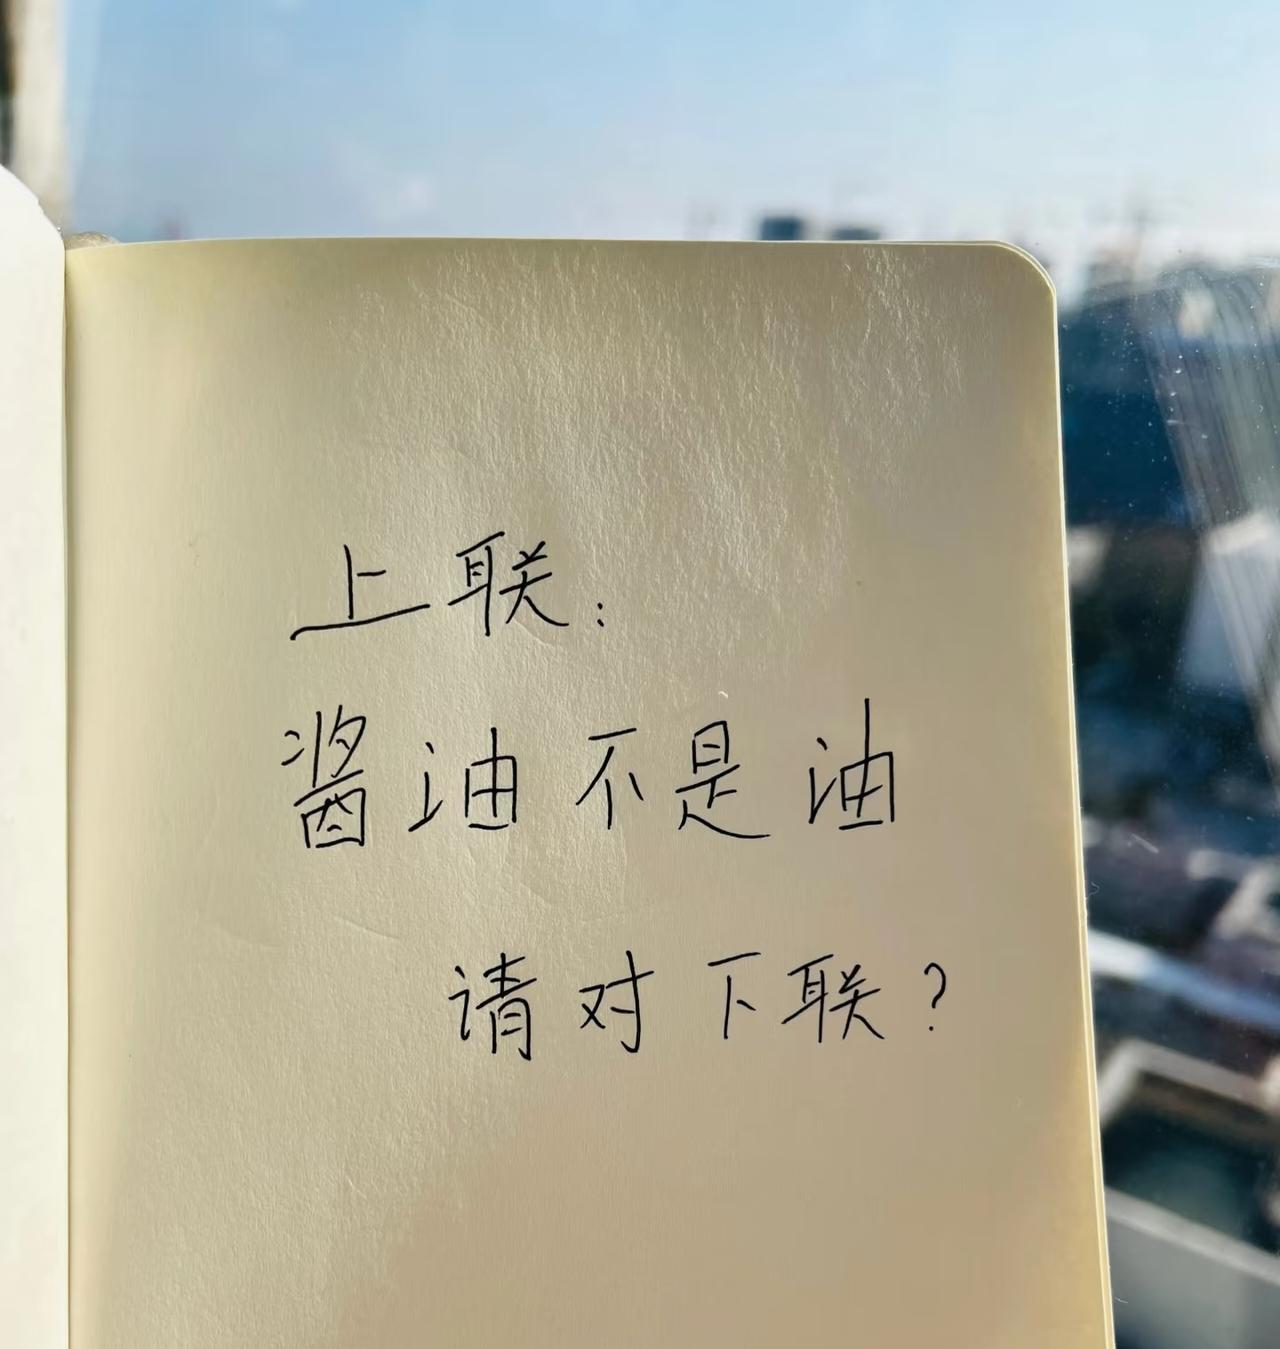 上联：
酱油不是油
请对下联？